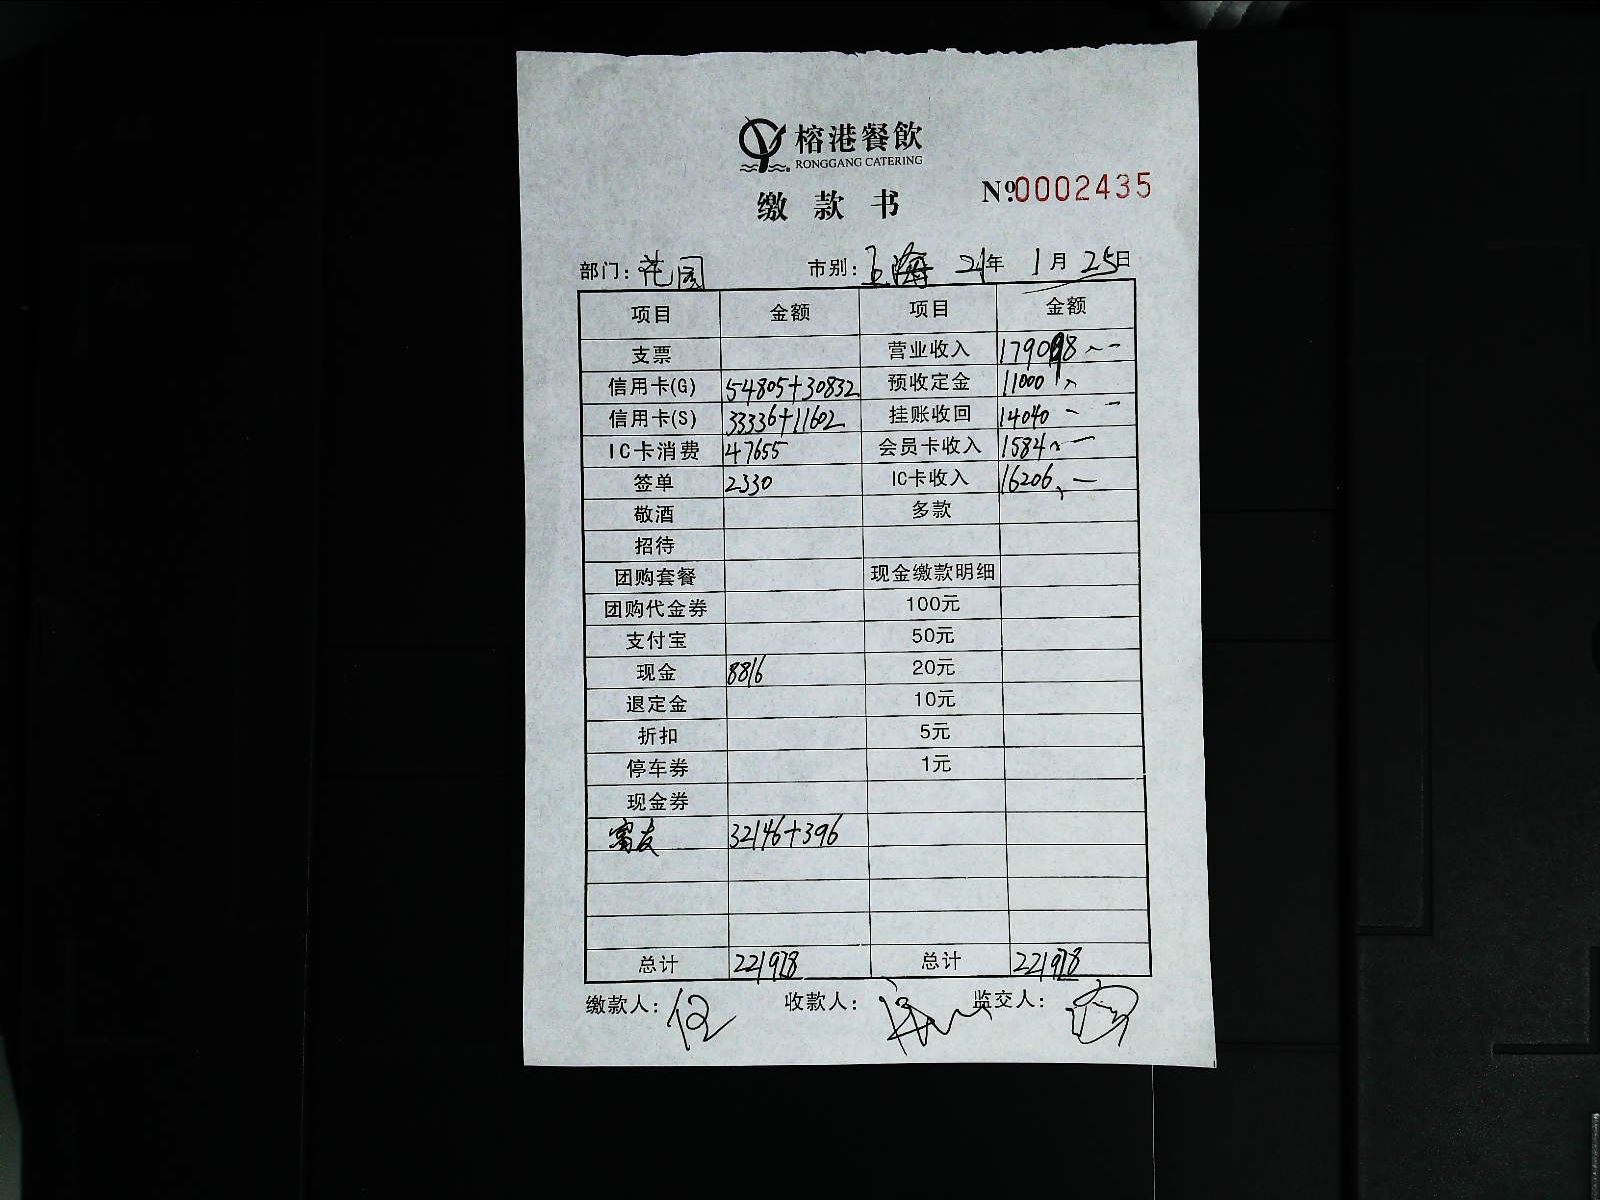 榕港餐飲
RONGGANG CATERING
缴款书
№0002435
部门: 花园 市别: 上海 21年 1月 25日
项目 金额 项目 金额
支票 营业收入 179088
信用卡(G) 54805+30832 预收定金 11000
信用卡(S) 33336+11602 挂账收回 14040
IC卡消费 47655 会员卡收入 1584
签单 2330 IC卡收入 16206
敬酒 多款
招待
团购套餐 现金缴款明细
团购代金券 100元
支付宝 50元
现金 8816 20元
退定金 10元
折扣 5元
停车券 1元
现金券
富友 32146+396
总计 221918 总计 221918
缴款人: 收款人: 监交人: